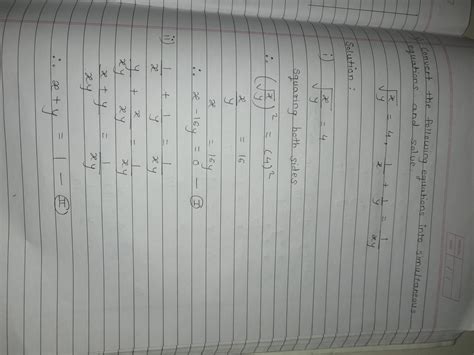 Convert the following equations into simultaneous
equations and solve
√(x/y) = 4, 1/x + 1/y = 1/xy
Solution:
i) √(x/y) = 4
Squaring both sides
∴ (√(x/y))² = (4)²
x/y = 16
x = 16y
∴ x - 16y = 0 — (I)
ii) 1/x + 1/y = 1/xy
y/xy + x/xy = 1/xy
x + y/xy = 1/xy
∴ x + y = 1 — (II)